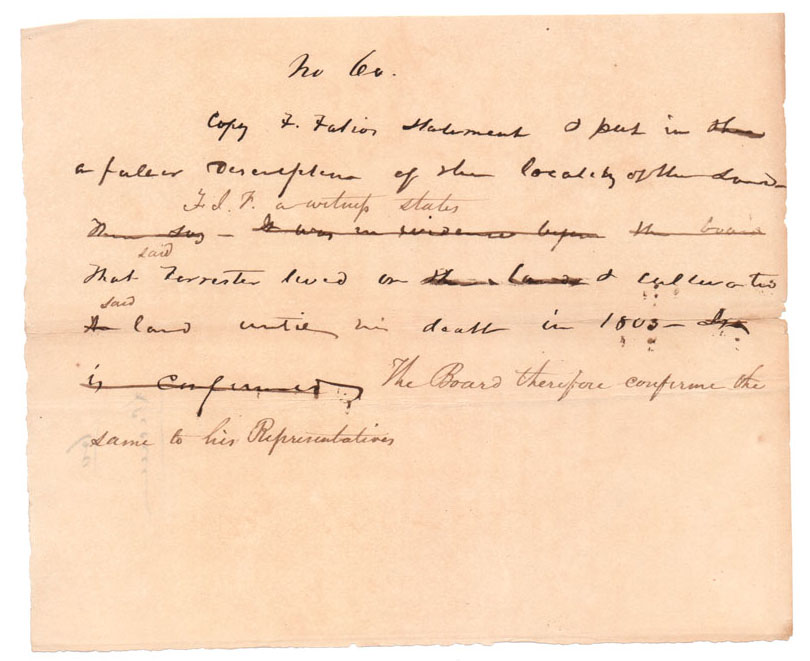 No 60.
Copy F. Fatios Statement & put in the
a fuller Description of the locality of the Land
F. J. F. a witness states
Then say - It was in evidence before the board
said
that Forrester lived on the land & cultivated
said
land until his death in 1803 -
is confirmed The Board therefore confirme the
same to his Representatives